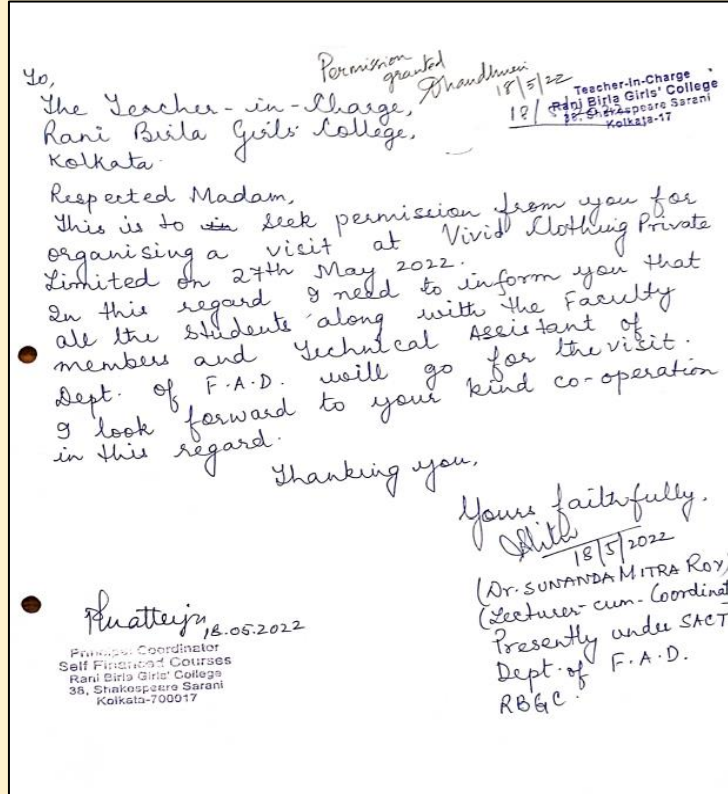 Permission
granted
18/5/22
Teacher-In-Charge
Rani Birla Girls' College
38, Shakespeare Sarani
Kolkata-17
To,
The Teacher-in-Charge,
Rani Birla Girls' College,
Kolkata.
Respected Madam,
This is to seek permission from you for
organising a visit at Vivid Clothing Private
Limited on 27th May 2022.
In this regard I need to inform you that
all the students along with the Faculty
members and Technical Assistant of
Dept. of F.A.D. will go for the visit.
I look forward to your kind co-operation
in this regard.
Thanking you,
Yours faithfully,
18/5/2022
(Dr. SUNANDA MITRA ROY)
(Lecturer-cum-Coordinat
Presently under SACT
Dept. of F.A.D.
RBGC.
18.05.2022
Principal Coordinator
Self Financed Courses
Rani Birla Girls' College
38, Shakespeare Sarani
Kolkata-700017